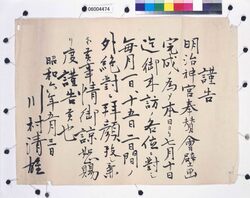 06004474
謹告
明治神宮奉賛會壁画
完成ノ為メ本日ヨリ七月十日
迄御来訪ノ各位ニ對シ
毎月一日十五日二日間ノ
外絶對拝顔致兼
事情御諒知賜
リ度謹告候也
昭和六年五月三日
川村清雄